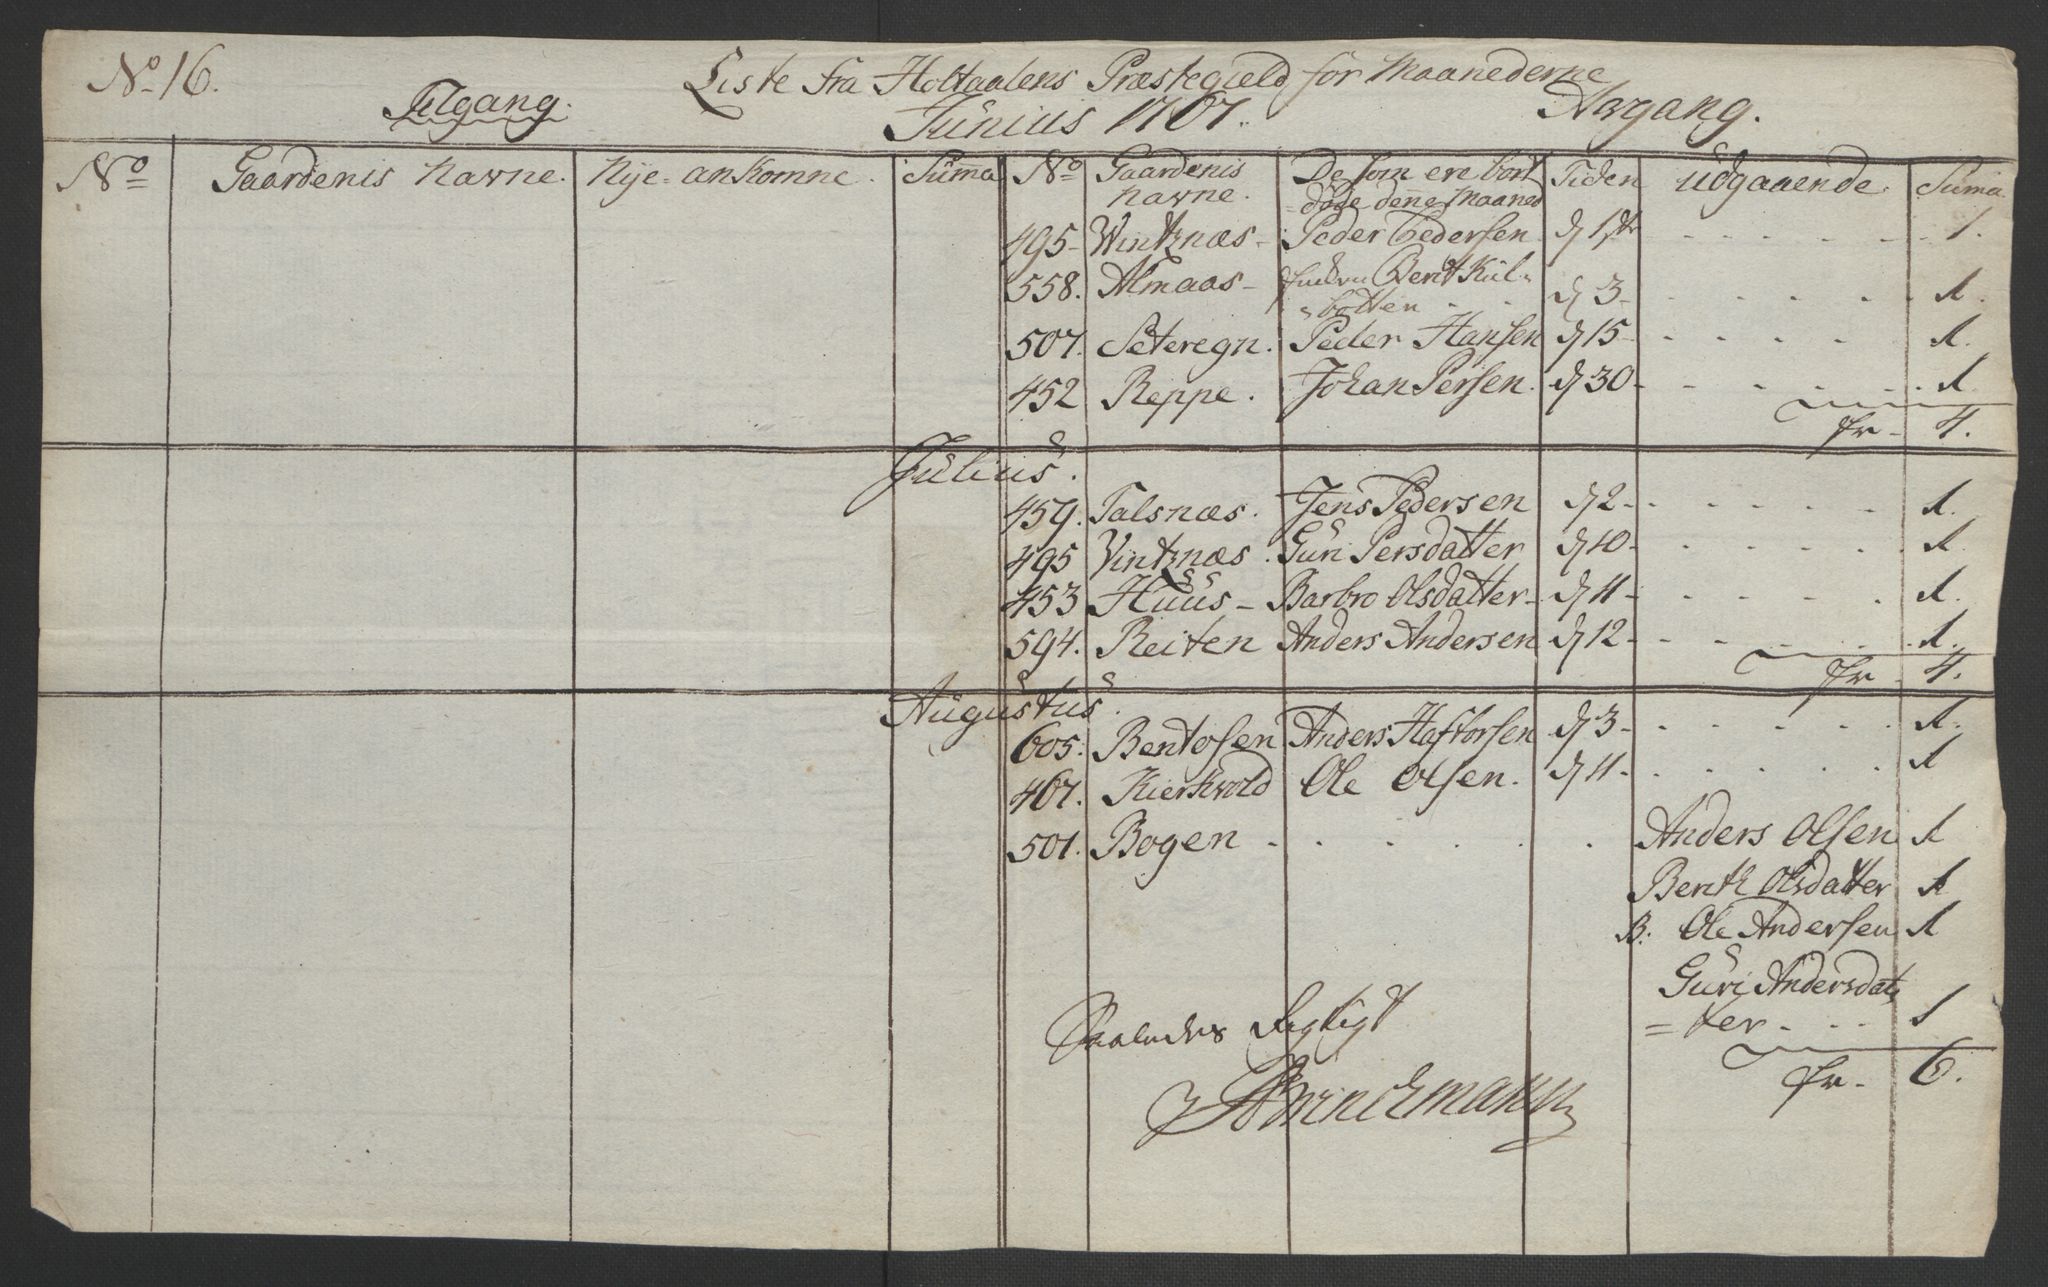 No 16.
Liste fra Holtaalens Præstegield for Maanederne
Tilgang.
Junius 1767.
Afgang.
No
Gaardenis Navne.
Nye-ankomne.
Summa
No
Gaardenis
Navne.
De som ere bort
døde denne Maaned
Tiden
Udgaaende.
Suma
495- Vintznæs- Peder Pedersen d 1ste 1.
558. Almaas- Bent Kul=
=botten d 3- 1.
507. Seteregn. Peder Hansen d 15- 1.
452 Reppe. Johan Persen. d 30- 1.
4.
Julius.
459. Talsnæs. Jens Pedersen d 2- 1.
495 Vintznæs. Guri Persdatter d 10- 1.
453 Huus- Barbro Olsdatter- d 11- 1.
594. Reiten Anders Andersen d 12- 1.
4.
Augustus.
605. Bentosen Anders Haftorsen d 3- 1.
467. Kierkvold Ole Olsen. d 11- 1
501. Bogen Anders Olsen 1
Berith Olsdatter 1
B: Ole Andersen 1
Guri Andersdat
=ter 1
6.
Saaledes Rigtigt
Brinchmann